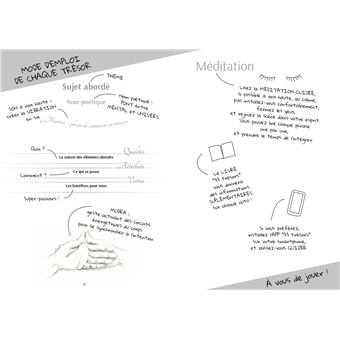 MODE D'EMPLOI
DE CHAQUE TRÉSOR
THÈME
Sujet abordé
Nom poétique
Nom poétique :
PONT entre
MENTAL et UNIVERS
SON à voix haute :
créer la VIBRATION
en soi
« Mantra - phrase de connexion au trésor »
Quoi ?
Qualités
La nature des éléments abordés
Comment ?
Ce qui se passe
Vertus
Les bénéfices pour vous
Super-pouvoirs !
MUDRA :
geste activant des circuits
énergétiques du corps
pour se synchroniser à l'intention
Méditation
Lisez la MÉDITATION GUIDÉE,
si possible à voix haute, au calme,
puis installez-vous confortablement,
fermez les yeux,
et rejouez la scène dans votre esprit
Vous pouvez lire chaque phrase
une par une,
et prendre le temps de l'intégrer
Le LIVRE
"44 trésors"
vous donnera
des informations
SUPLÉMENTAIRES
sur chaque outil !
Si vous préférez,
installez l'APP "44 trésors"
sur votre smartphone,
et laissez-vous GUIDER
À vous de jouer !